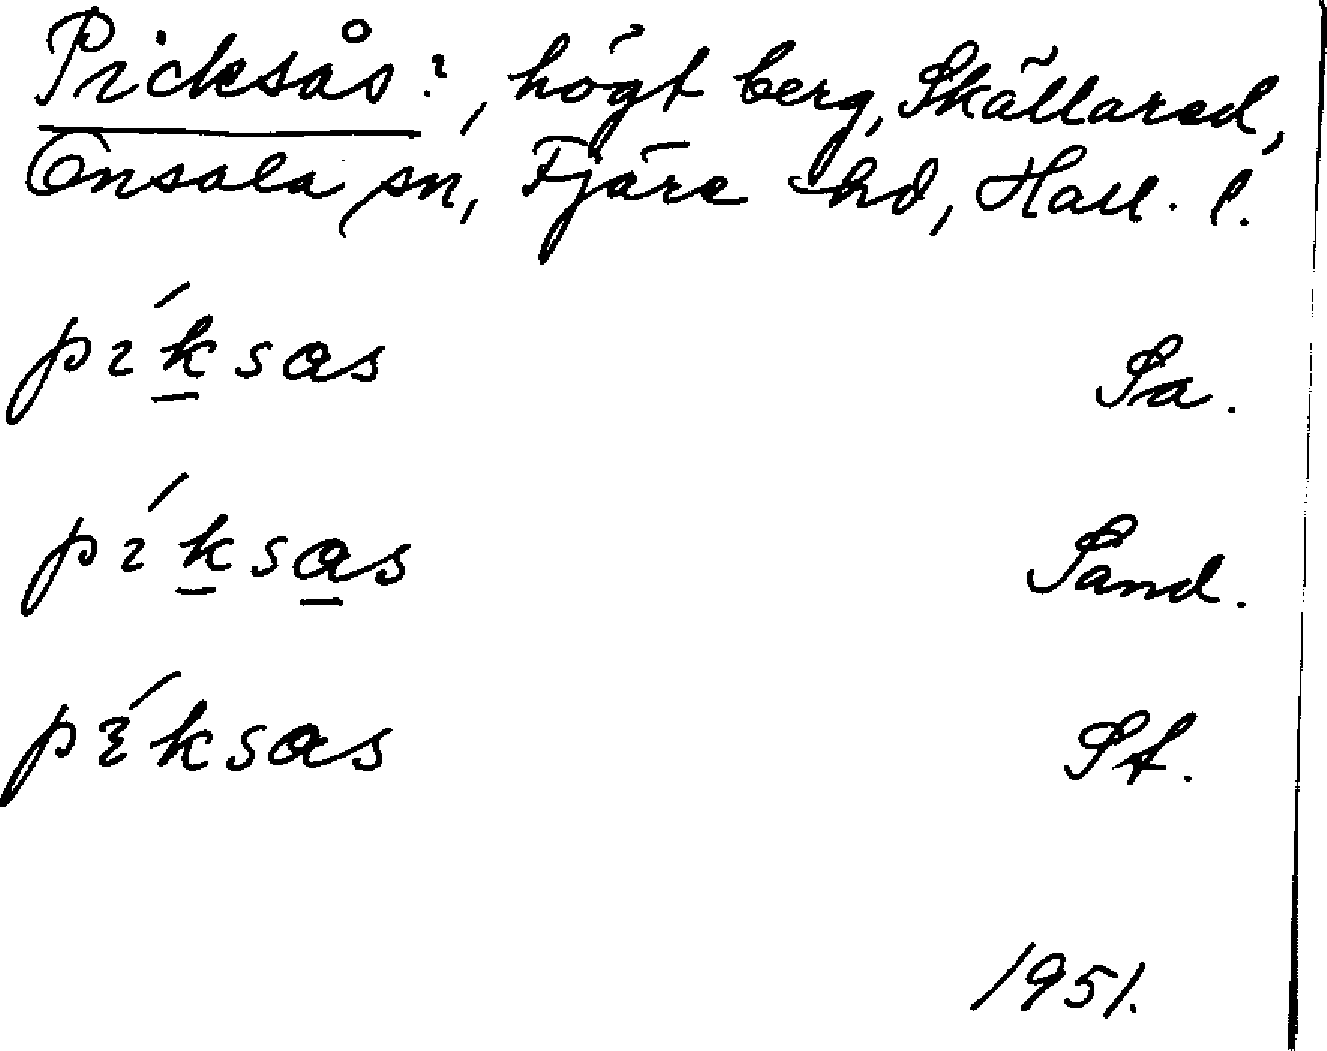 Picksås?, högt berg, Skällared,
Onsala sn, Fjäre hd, Hall. l.
píksɑs Sa.
píksɑs Sand.
píksɑs St.
1951.